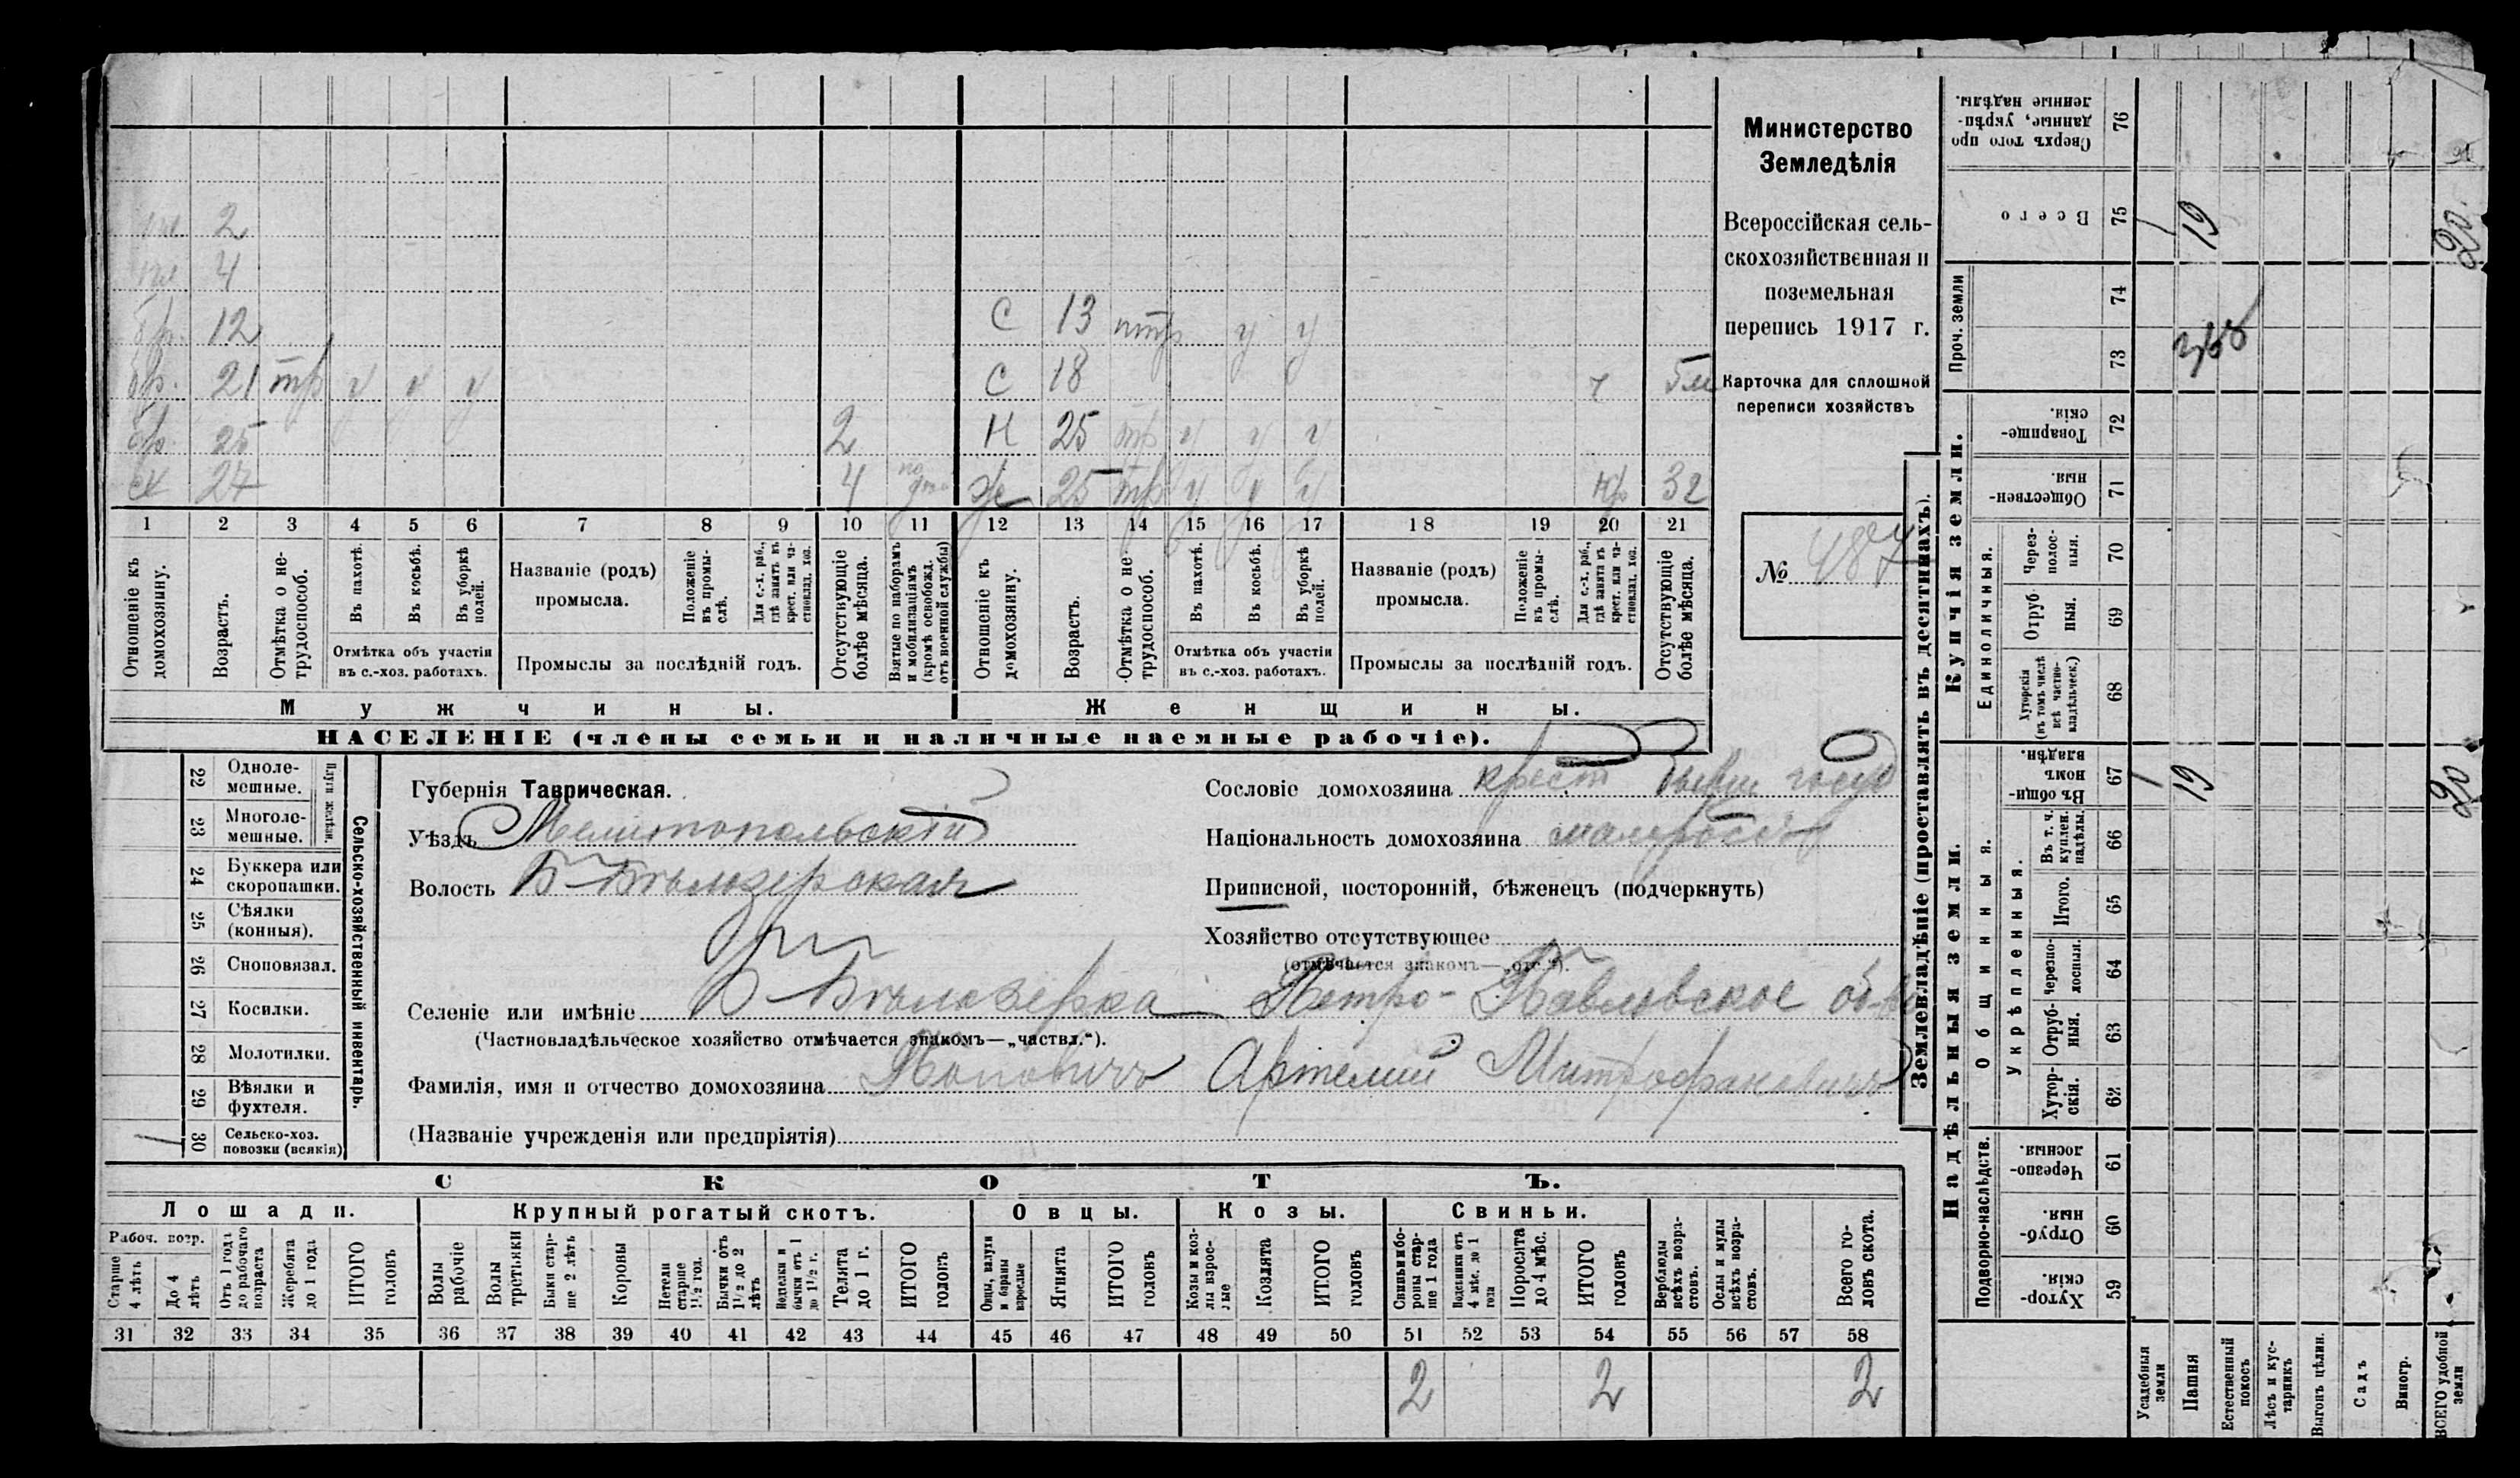 2
4
бр. 12
С 13 нтр у у
бр. 21 тр у у у
С 18 ч 5м
бр. 25 2
Н 25 тр у у у
сх 27 4
Ж 25 тр у у у кр 32
1 2 3 4 5 6 7 8 9 10 11 12 13 14 15 16 17 18 19 20 21
Отношеніе къ домохозяину.
Возрастъ.
Отмѣтка о нетрудоспособ.
Въ пахотѣ.
Въ косьбѣ.
Въ уборкѣ полей.
Отмѣтка объ участіи
въ с.-хоз. работахъ.
Названіе (родъ)
промысла.
Положеніе въ промыслѣ.
Для с.-х. раб., гдѣ занятъ въ крест. или частновлад. хоз.
Промыслы за послѣдній годъ.
Отсутствующіе болѣе мѣсяца.
Взятые по наборамъ и мобилизаціямъ (кромѣ освобожд. отъ военной службы)
Отношеніе къ домохозяину.
Возрастъ.
Отмѣтка о нетрудоспособ.
Въ пахотѣ.
Въ косьбѣ.
Въ уборкѣ полей.
Отмѣтка объ участіи
въ с.-хоз. работахъ.
Названіе (родъ)
промысла.
Положеніе въ промыслѣ.
Для с.-х. раб., гдѣ занята въ крест. или частновлад. хоз.
Промыслы за послѣдній годъ.
Отсутствующіе болѣе мѣсяца.
Мужчины.
Женщины.
НАСЕЛЕНІЕ (члены семьи и наличные наемные рабочіе).
Министерство
Земледѣлія
Всероссійская сель-
скохозяйственная и
поземельная
перепись 1917 г.
Карточка для сплошной
переписи хозяйствъ
№ 487
Сельско-хозяйственный инвентарь.
Плуги желѣзн.
22 Одноле-
мешные.
23 Многоле-
мешные.
24 Буккера или
скоропашки.
25 Сѣялки
(конныя).
26 Сноповязал.
27 Косилки.
28 Молотилки.
29 Вѣялки и
фухтеля.
30 Сельско-хоз.
повозки (всякія)
1
Губернія Таврическая.
Уѣздъ Мелитопольскій
Волость Б-Бѣлозерская
Сословіе домохозяина крест бывш госуд
Національность домохозяина малоросъ
Приписной, посторонній, бѣженецъ (подчеркнуть)
Хозяйство отсутствующее
(отмѣчается знакомъ—„отс.“).
Селеніе или имѣніе Б-Бѣлозерка Петро-Павловское об-во
(Частновладѣльческое хозяйство отмѣчается знакомъ—„частвл.“).
Фамилія, имя и отчество домохозяина Поповичъ Артемій Митрофановичъ
(Названіе учрежденія или предпріятія)
СКОТЪ.
Лошади.
Крупный рогатый скотъ.
Овцы.
Козы.
Свиньи.
Рабоч. возр.
Старше 4 лѣтъ
До 4 лѣтъ
Отъ 1 года до рабочаго возраста
Жеребята до 1 года
ИТОГО головъ
Волы рабочіе
Волы третьяки
Быки старше 2 лѣтъ
Коровы
Нетели старше 1½ год.
Бычки отъ 1½ до 2 лѣтъ
Подтелки и бычки отъ 1 до 1½ г.
Телята до 1 г.
ИТОГО головъ
Овцы, валухи и бараны взрослые
Ягнята
ИТОГО головъ
Козы и козлы взрослые
Козлята
ИТОГО головъ
Свиньи и боровы старше 1 года
Подсвинки отъ 4 мѣс. до 1 года
Поросята до 4 мѣс.
ИТОГО головъ
Верблюды всѣхъ возрастовъ.
Ослы и мулы всѣхъ возрастовъ.
Всего головъ скота.
31 32 33 34 35 36 37 38 39 40 41 42 43 44 45 46 47 48 49 50 51 52 53 54 55 56 57 58
2 2 2
Землевладѣніе (проставлять въ десятинахъ).
Надѣльныя земли.
Купчія земли.
Проч. земли
Подворно-наслѣдств.
Общинныя.
Укрѣпленныя.
Единоличныя.
Хутор-
скія. 59
Отруб-
ныя. 60
Черезпо-
лосныя. 61
Хутор-
скія. 62
Отруб-
ныя. 63
Черезпо-
лосныя. 64
Итого. 65
Въ т. ч. куплен. надѣлы. 66
Въ общин-
номъ владѣн. 67
Хуторскія (въ томъ числѣ всѣ частновладѣльческ.) 68
Отруб-
ныя. 69
Через-
полос-
ныя. 70
Обществен-
ныя. 71
Товарище-
скія. 72
73
74
Всего 75
Сверхъ того про-
данные, укрѣп-
ленные надѣлы. 76
1 19 20
1 19 20
Усадебныя земли
Пашня
Естественный покосъ
Лѣсъ и кустарникъ
Выгонъ цѣлин.
Садъ
Виногр.
ВСЕГО удобной земли